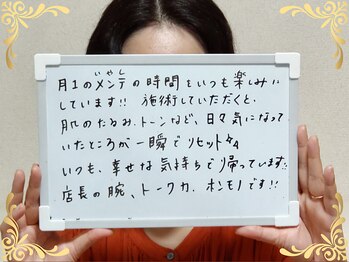 いやし
月1のメンテの時間をいつも楽しみに
しています!! 施術していただくと、
肌のたるみ、トーンなど、日々気になって
いたところが一瞬でリセット✨
いつも、幸せな気持ちで帰っています!!
店長の腕、トーク力、ホンモノです!!